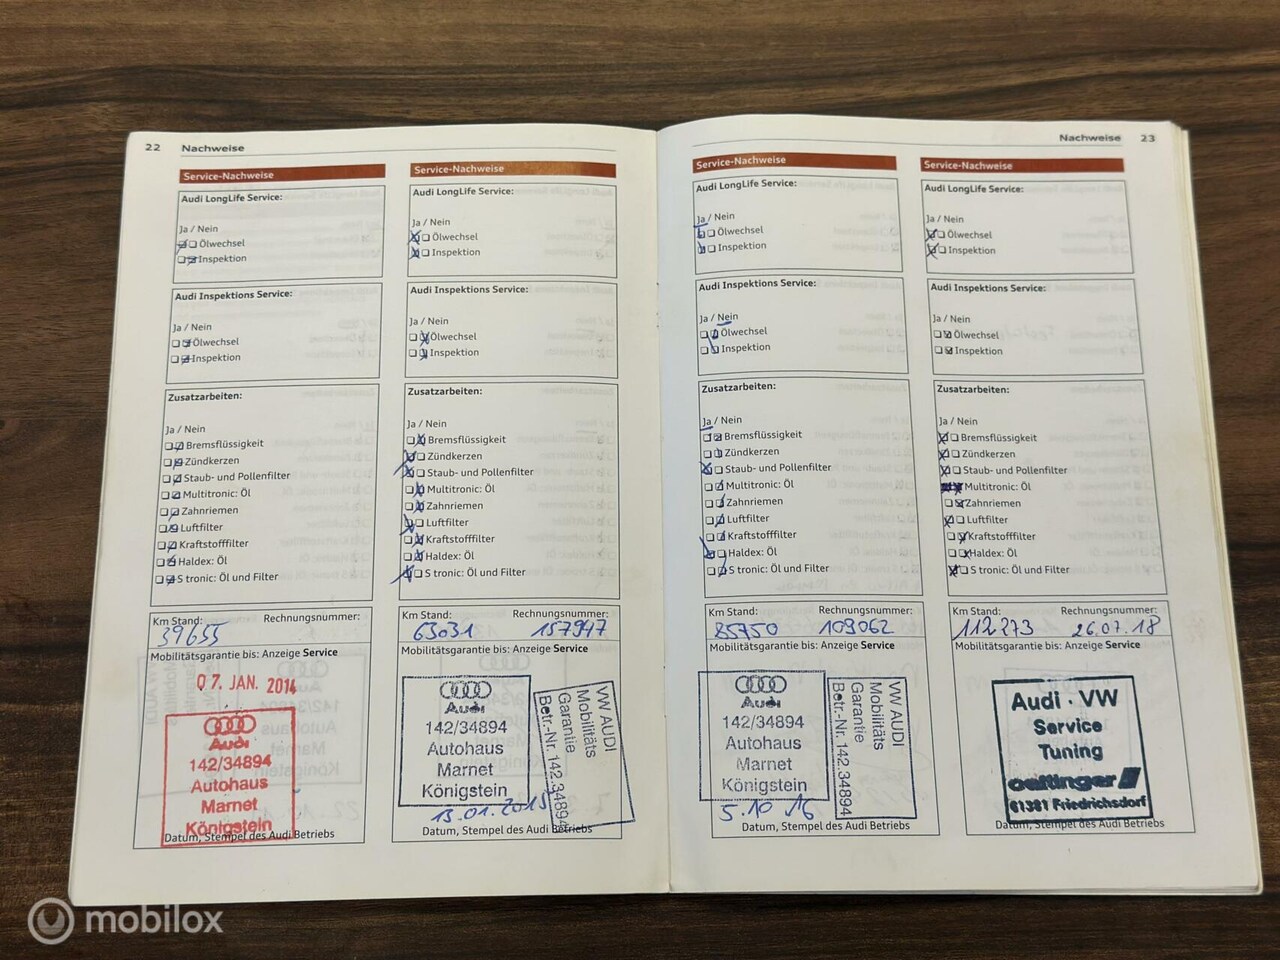 22 Nachweise
Service-Nachweise
Audi LongLife Service:
Ja / Nein
Ölwechsel
Inspektion
Audi Inspektions Service:
Ja / Nein
Ölwechsel
Inspektion
Zusatzarbeiten:
Ja / Nein
Bremsflüssigkeit
Zündkerzen
Staub- und Pollenfilter
Multitronic: Öl
Zahnriemen
Luftfilter
Kraftstofffilter
Haldex: Öl
S tronic: Öl und Filter
Km Stand: Rechnungsnummer:
39655
Mobilitätsgarantie bis: Anzeige Service
07. JAN. 2014
Audi
142/34894
Autohaus
Marnet
Königstein
Datum, Stempel des Audi Betriebs
Service-Nachweise
Audi LongLife Service:
Ja / Nein
Ölwechsel
Inspektion
Audi Inspektions Service:
Ja / Nein
Ölwechsel
Inspektion
Zusatzarbeiten:
Ja / Nein
Bremsflüssigkeit
Zündkerzen
Staub- und Pollenfilter
Multitronic: Öl
Zahnriemen
Luftfilter
Kraftstofffilter
Haldex: Öl
S tronic: Öl und Filter
Km Stand: Rechnungsnummer:
63031 157947
Mobilitätsgarantie bis: Anzeige Service
Audi
142/34894
Autohaus
Marnet
Königstein
VW AUDI
Mobilitäts
Garantie
Betr.-Nr. 142.34894
13.01.2015
Datum, Stempel des Audi Betriebs
Nachweise 23
Service-Nachweise
Audi LongLife Service:
Ja / Nein
Ölwechsel
Inspektion
Audi Inspektions Service:
Ja / Nein
Ölwechsel
Inspektion
Zusatzarbeiten:
Ja / Nein
Bremsflüssigkeit
Zündkerzen
Staub- und Pollenfilter
Multitronic: Öl
Zahnriemen
Luftfilter
Kraftstofffilter
Haldex: Öl
S tronic: Öl und Filter
Km Stand: Rechnungsnummer:
85750 109062
Mobilitätsgarantie bis: Anzeige Service
Audi
142/34894
Autohaus
Marnet
Königstein
VW AUDI
Mobilitäts
Garantie
Betr.-Nr. 142.34894
5.10 16
Datum, Stempel des Audi Betriebs
Service-Nachweise
Audi LongLife Service:
Ja / Nein
Ölwechsel
Inspektion
Audi Inspektions Service:
Ja / Nein
Ölwechsel
Inspektion
Zusatzarbeiten:
Ja / Nein
Bremsflüssigkeit
Zündkerzen
Staub- und Pollenfilter
Multitronic: Öl
Zahnriemen
Luftfilter
Kraftstofffilter
Haldex: Öl
S tronic: Öl und Filter
Km Stand: Rechnungsnummer:
112273 26.07.18
Mobilitätsgarantie bis: Anzeige Service
Audi · VW
Service
Tuning
oettinger
61381 Friedrichsdorf
Datum, Stempel des Audi Betriebs
mobilox